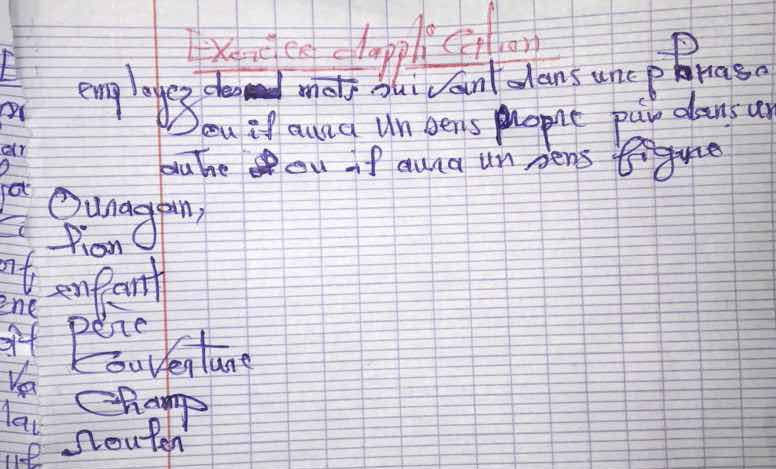 Exercice d'application
employez des mots suivant dans une phrase
ou il aura un sens propre puis dans un
autre ou il aura un sens figure
Ouragan,
lion
enfant
père
Couverture
Champ
rouler